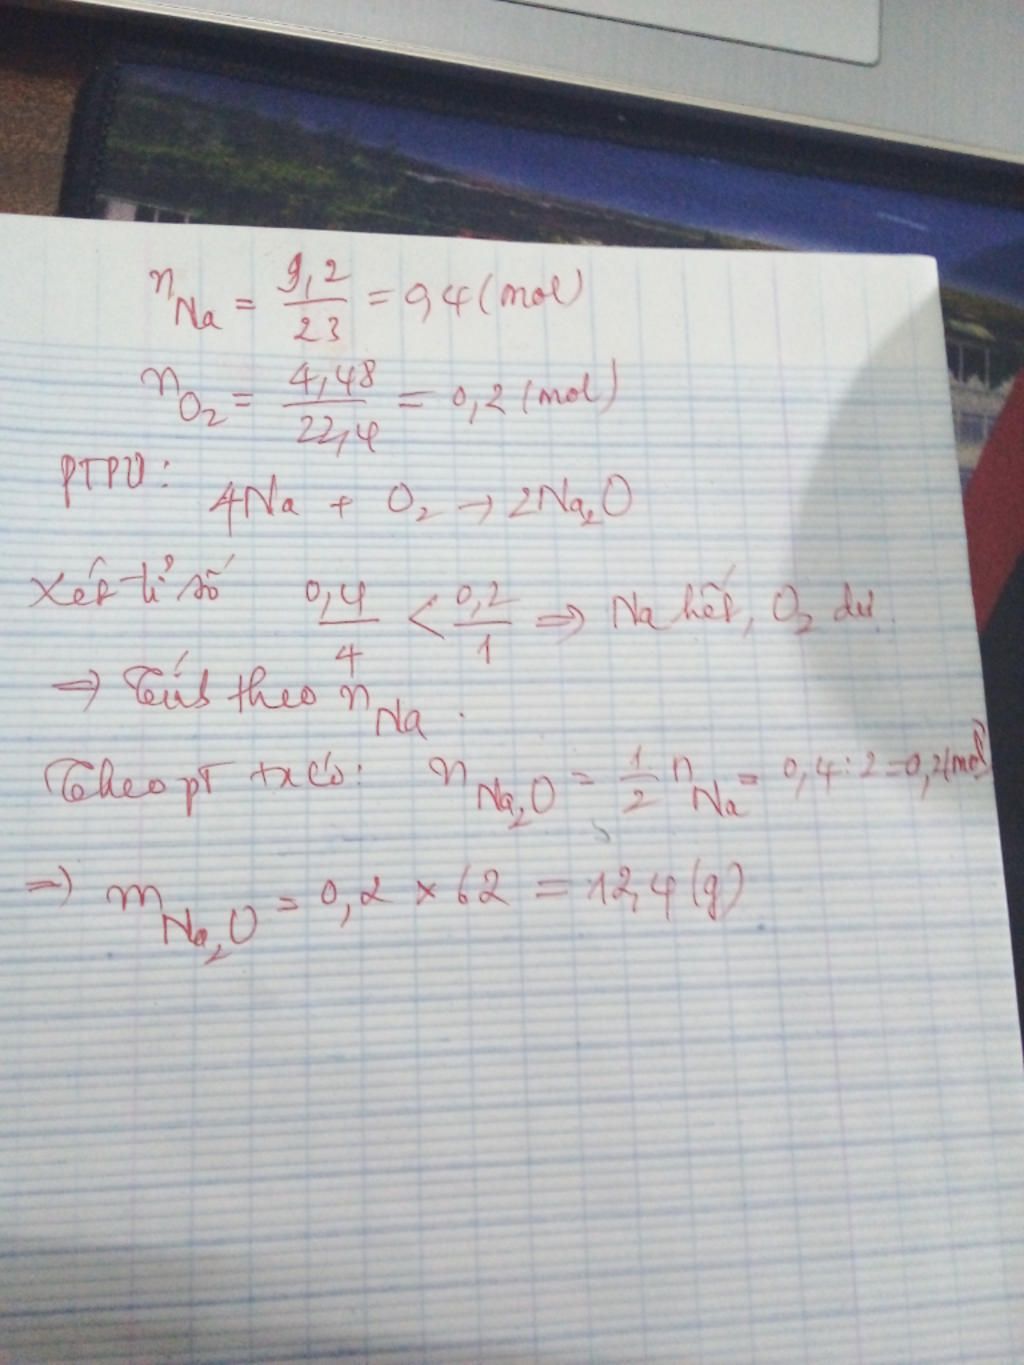 n_Na = 9,2/23 = 0,4 (mol)
n_O₂ = 4,48/22,4 = 0,2 (mol)
PTPƯ:
4Na + O₂ → 2Na₂O
Xét tỉ số 0,4/4 < 0,2/1 ⇒ Na hết, O₂ dư.
⇒ Tính theo n_Na.
Theo pt ta có: n_Na₂O = 1/2 n_Na = 0,4 : 2 = 0,2 (mol)
⇒ m_Na₂O = 0,2 × 62 = 12,4 (g)